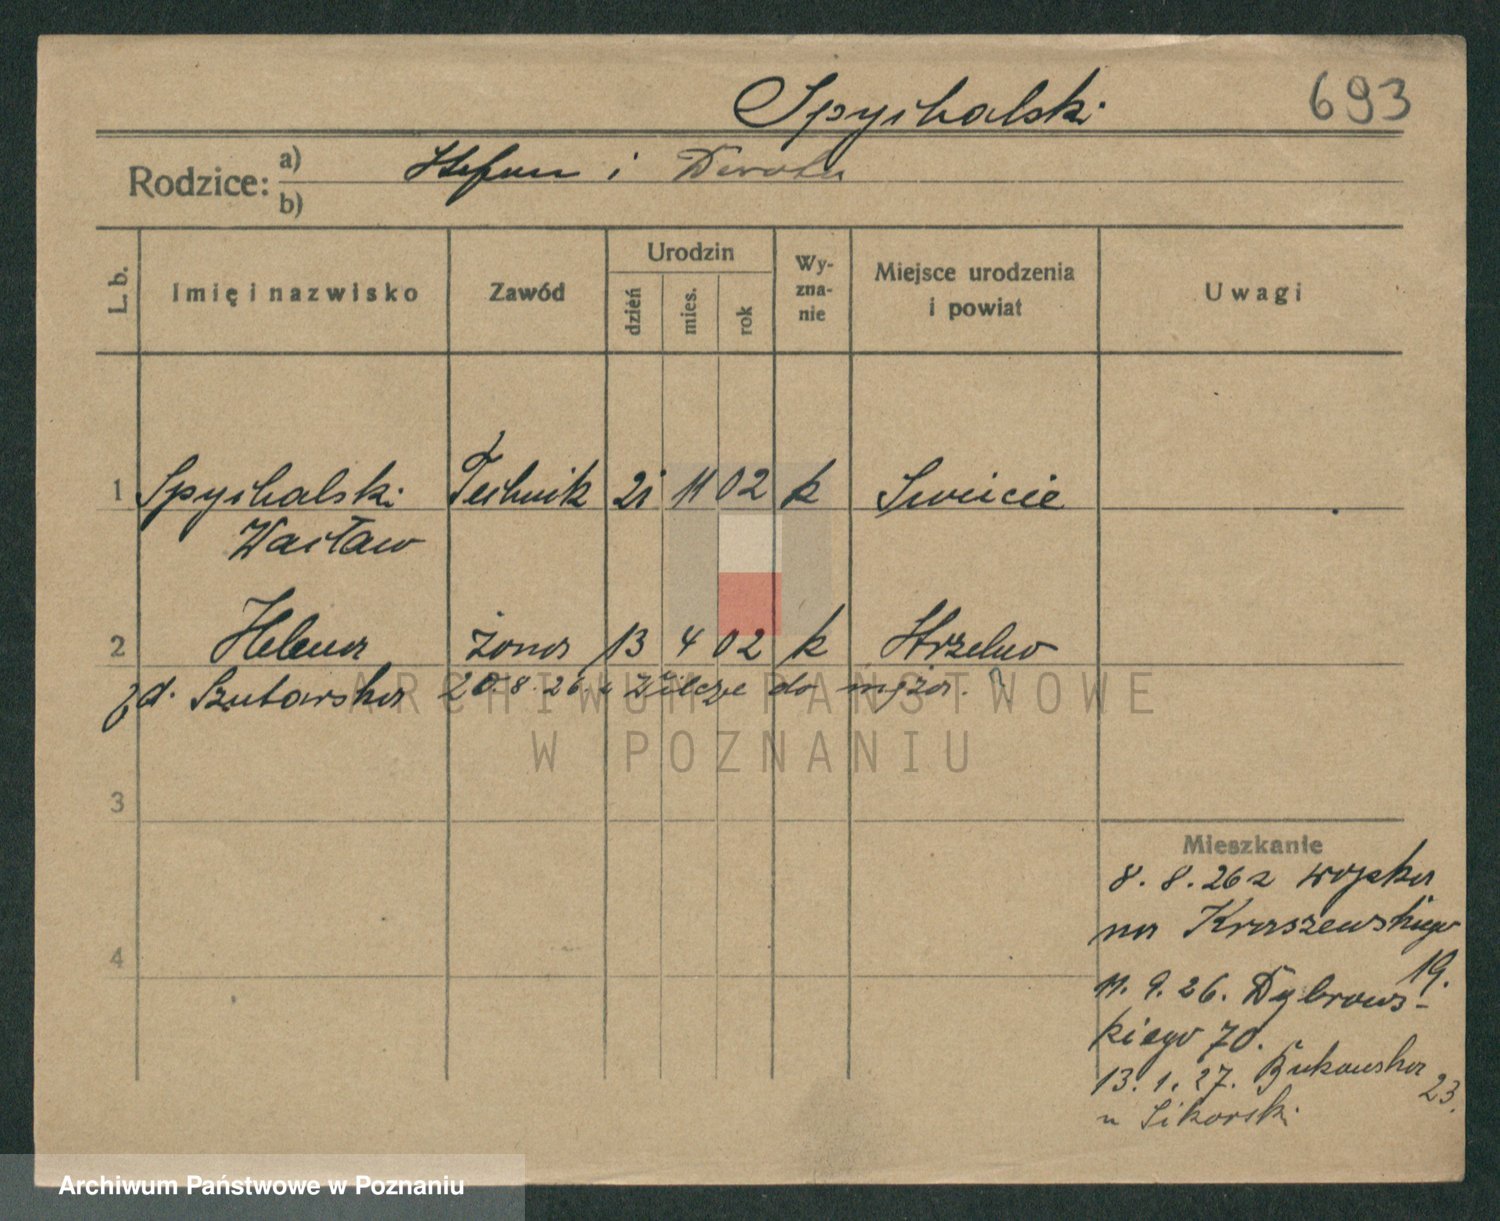 Spychalski
693
Rodzice: a) Stefan i Dorota
b)
L. b. Imię i nazwisko Zawód Urodzin dzień mies. rok Wy-zna-nie Miejsce urodzenia i powiat Uwagi
1 Spychalski Technik 21 11 02 k Swiecie
Wacław
2 Helena żona 13 4 02 k Strzelno
zd. Szutarska 20.8.26. z do męża.
ARCHIWUM PAŃSTWOWE
W POZNANIU
3
4
Mieszkanie
8. 8. 26 z wojska
na Kraszewskiego
19.
11. 9. 26. Dąbrows-
kiego 70.
13. 1. 27. Bukowska
23.
u Sikorski
Archiwum Państwowe w Poznaniu